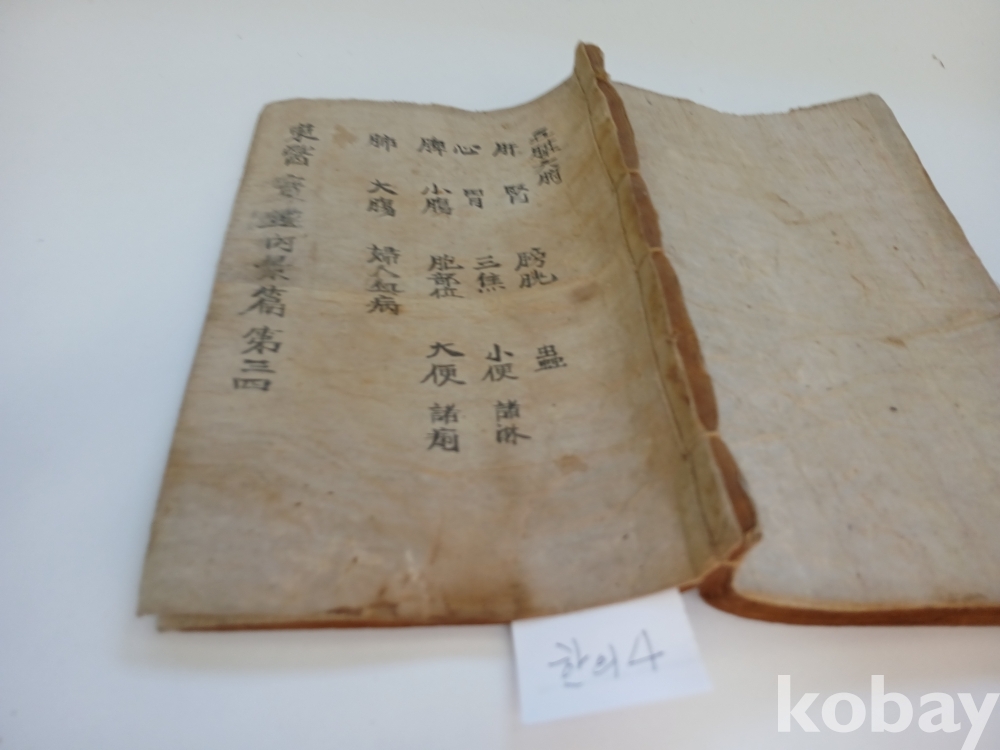 肝 腎 膀胱 蟲
心 胃 三焦 小便 諸淋
脾 小腸 胞部位 大便 諸
肺 大腸 婦人血病
東醫寶鑑內景篇第三四
한의4
kobay